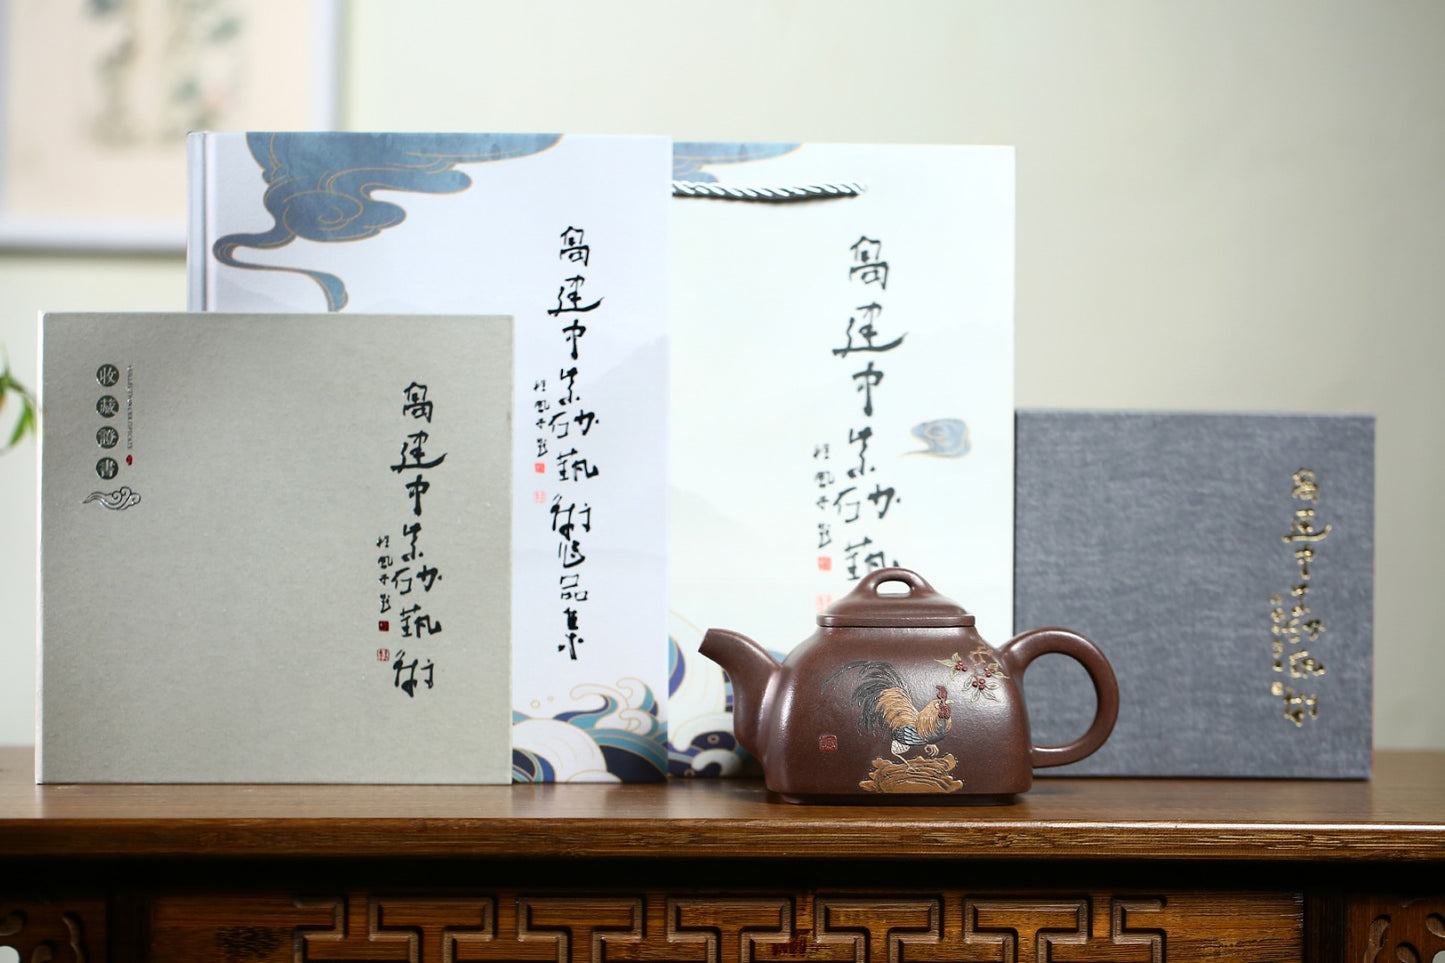 收藏證書
高建中紫砂藝術
高建中紫砂藝術作品集
高建中紫砂藝
高建中紫砂藝術